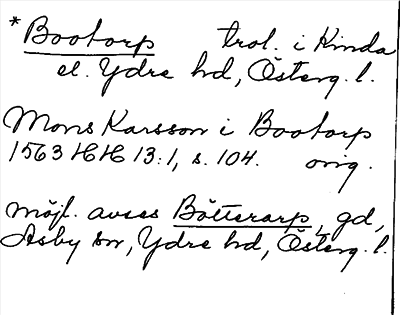 * Bootorp trol. i Kinda
el. Ydre hd, Österg. l.
Mons Karsson i Bootorp
1563 HH 13:1, s. 104. orig.
möjl. avses Bötterarp, gd,
Asby sn, Ydre hd, Österg. l.